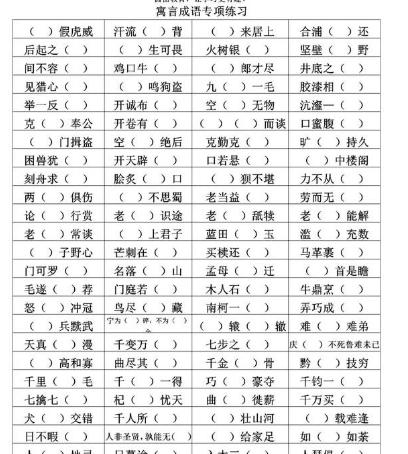 寓言成语专项练习
（ ）假虎威 汗流（ ）背 （ ）来居上 合浦（ ）还
后起之（ ） （ ）生可畏 火树银（ ） 坚壁（ ）野
间不容（ ） 鸡口牛（ ） （ ）郎才尽 井底之（ ）
见猎心（ ） （ ）鸣狗盗 九（ ）一毛 胶漆相（ ）
举一反（ ） 开诚布（ ） 空（ ）无物 沆瀣一（ ）
克（ ）奉公 开卷有（ ） （ ）（ ）而谈 口蜜腹（ ）
（ ）门揖盗 空（ ）绝后 克勤克（ ） 旷（ ）持久
困兽犹（ ） 开天辟（ ） 口若悬（ ） （ ）中楼阁
刻舟求（ ） 脍炙（ ）口 （ ）狈不堪 力不从（ ）
两（ ）俱伤 （ ）不思蜀 老当益（ ） 劳而无（ ）
论（ ）行赏 老（ ）识途 老（ ）舐犊 老（ ）能解
老（ ）常谈 （ ）上君子 蓝田（ ）玉 滥（ ）充数
（ ）子野心 芒刺在（ ） 买椟还（ ） 马革裹（ ）
门可罗（ ） 名落（ ）山 孟母（ ）迁 （ ）首是瞻
毛遂（ ）荐 门庭若（ ） 木人石（ ） 牛鼎烹（ ）
怒（ ）冲冠 鸟尽（ ）藏 南柯一（ ） 弄巧成（ ）
（ ）兵黩武 宁为（ ）碎，不为（ ）全 （ ）辕（ ）辙 难（ ）难弟
天真（ ）漫 千变万（ ） 七步之（ ） 庆（ ）不死鲁难未已
（ ）高和寡 曲尽其（ ） 千金（ ）骨 黔（ ）技穷
千里（ ）毛 千（ ）一得 巧（ ）豪夺 千钧一（ ）
七擒七（ ） 杞（ ）忧天 曲（ ）徙薪 千万买（ ）
犬（ ）交错 千人所（ ） （ ）壮山河 （ ）载难逢
日不暇（ ） 人非圣贤，孰能无（ ） （ ）给家足 如（ ）如荼